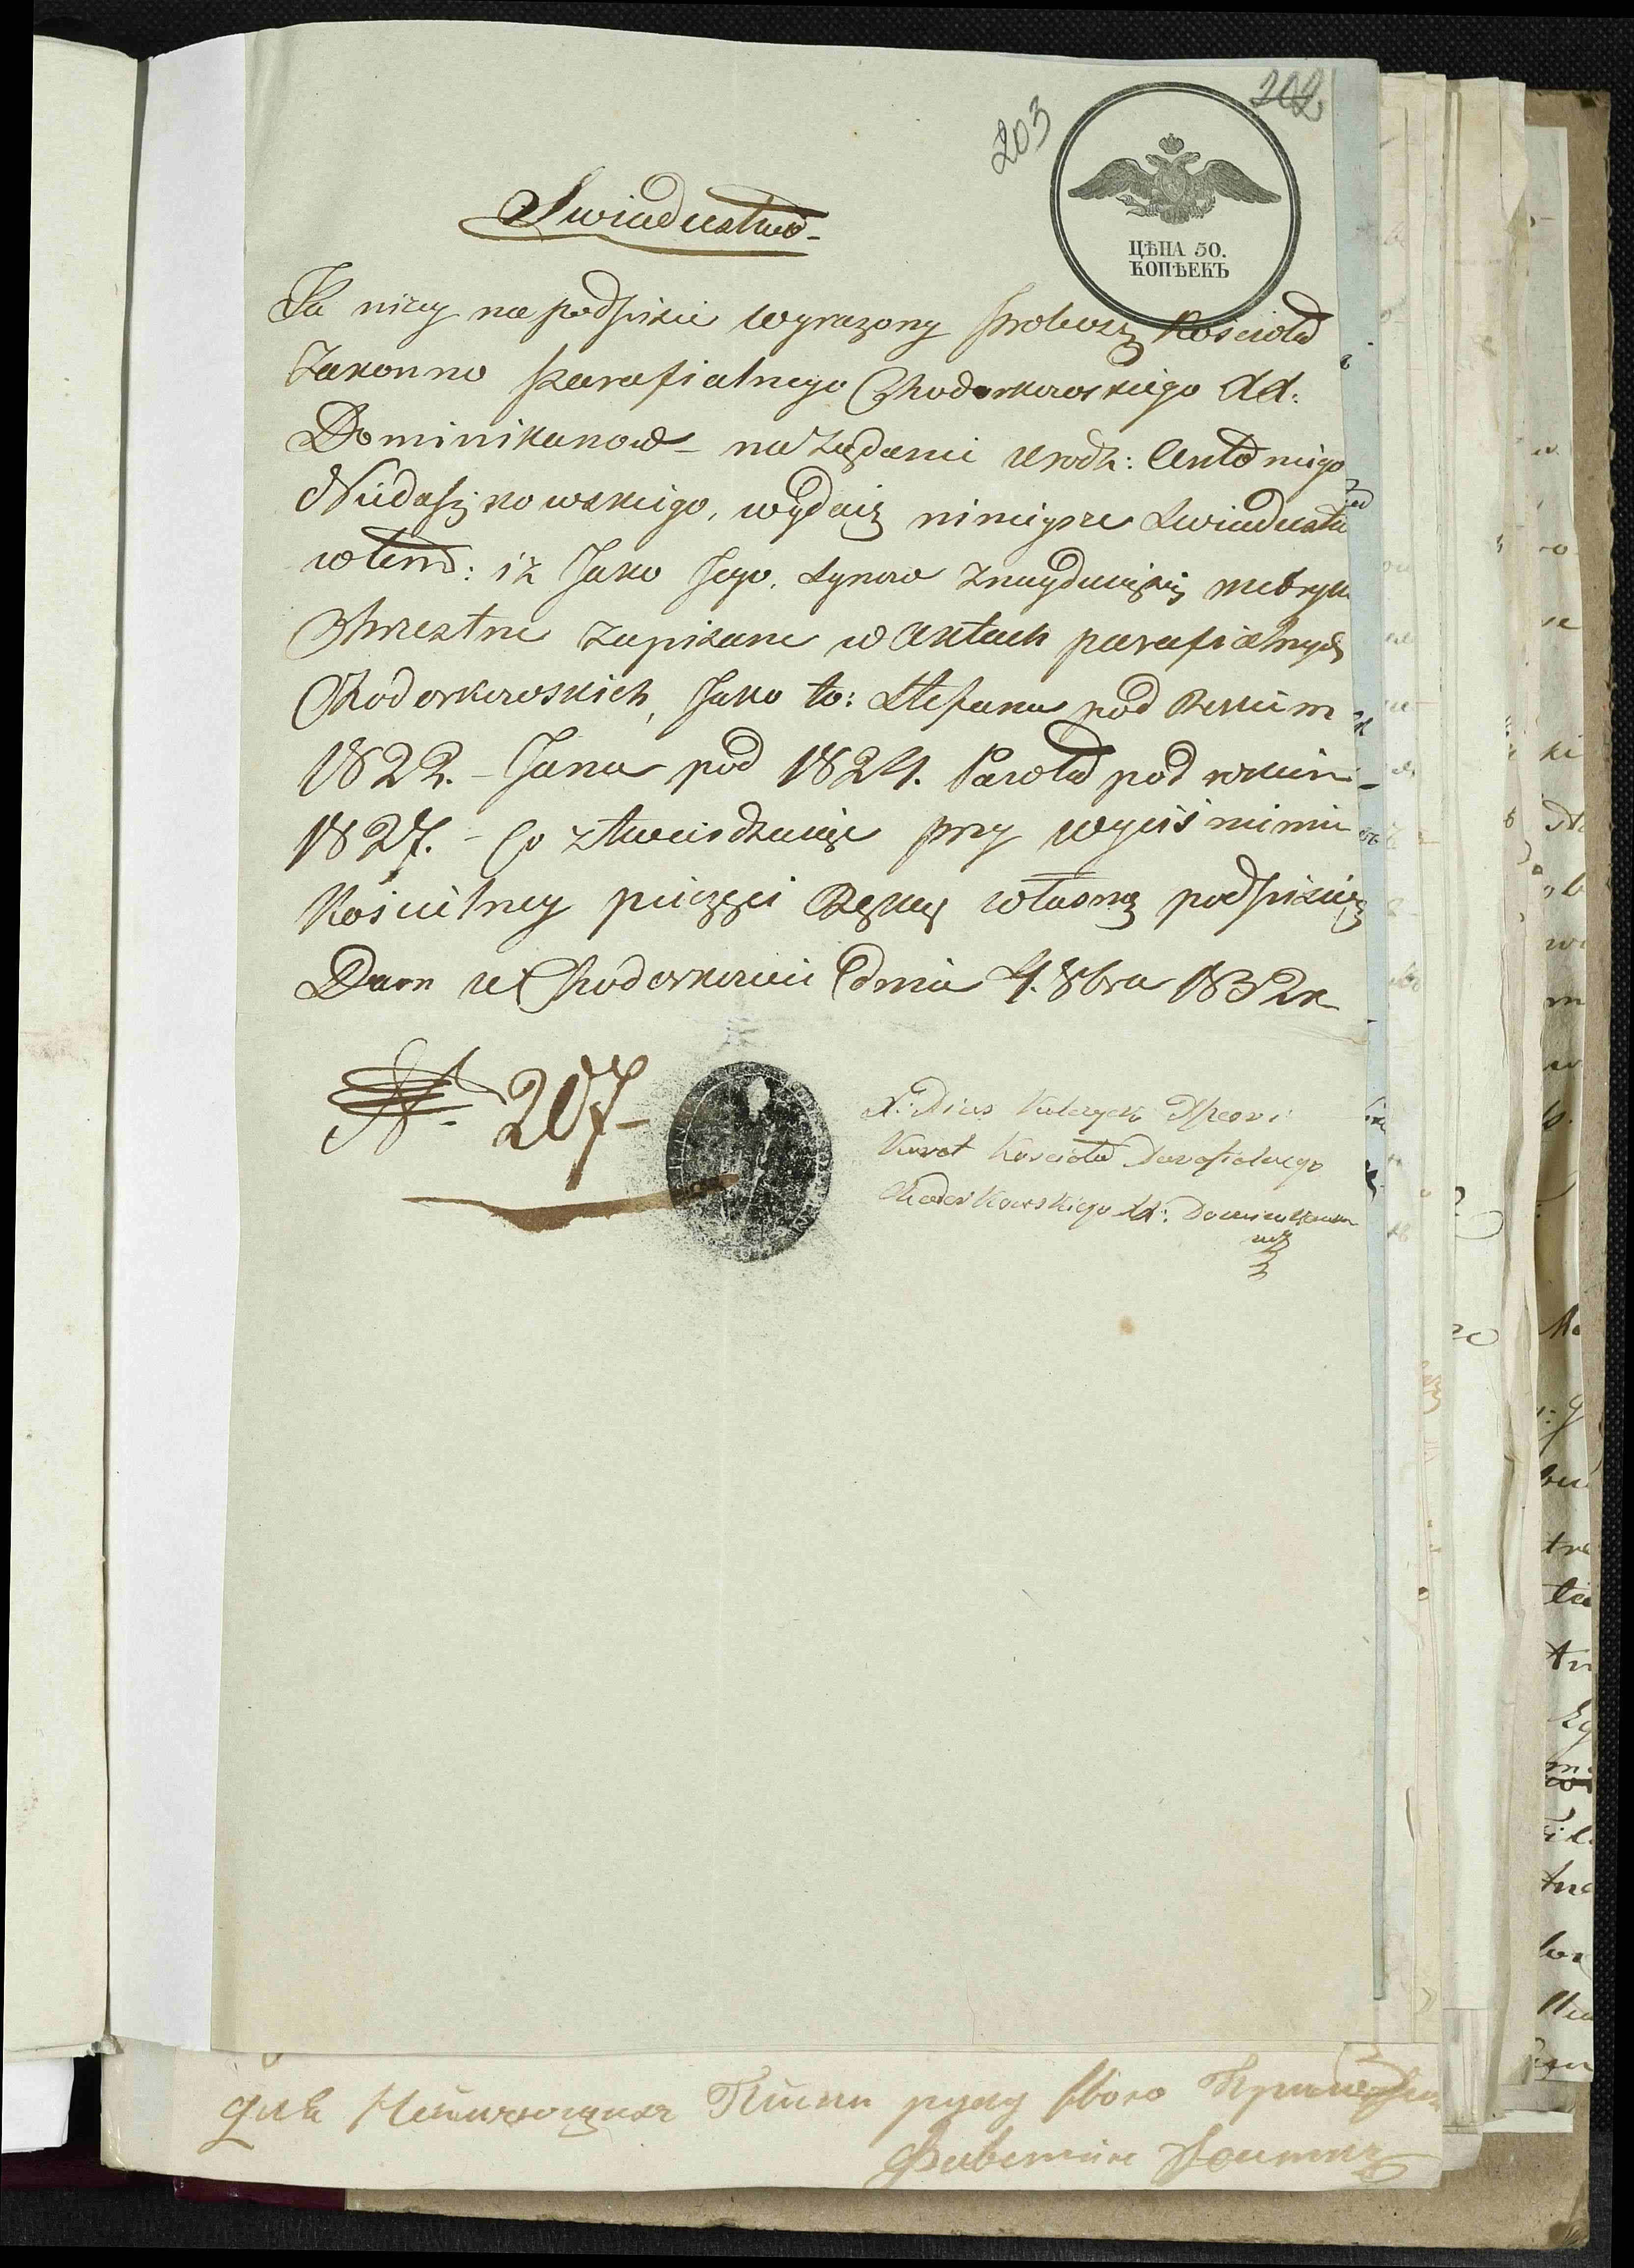 203
202
ЦѢНА 50.
КОПѢЕКЪ
Swiadectwo
Ja niżey na podpisie wyrazony Probosz Koscioła
Zakonno Parafialnego Chodorkowskiego XX:
Dominikanow - na żądanie Urodz: Antoniego
Niedaszkowskiego, wydaię ninieysze Swiadectw
w tem: iż Jako Jego Synow znayduią się metryk
Chrzestne zapisane w Aktach parafialnych
Chodorkowskich, Jako to: Stefana pod Rokiem
1822. - Jana pod 1824. Pawła pod rokiem
1827. - Co ztwierdzaiąc przy wyciśnieniu
Kościelney pieczęci Ręką własną podpisuię
Dan w Chodorkowie dnia 4. 8bra 1832 r.
N 207 -
X: Pius
Kurat Kosciola Parafialnego
Chodorkowskiego XX: Dominikanow
mp
руку свою